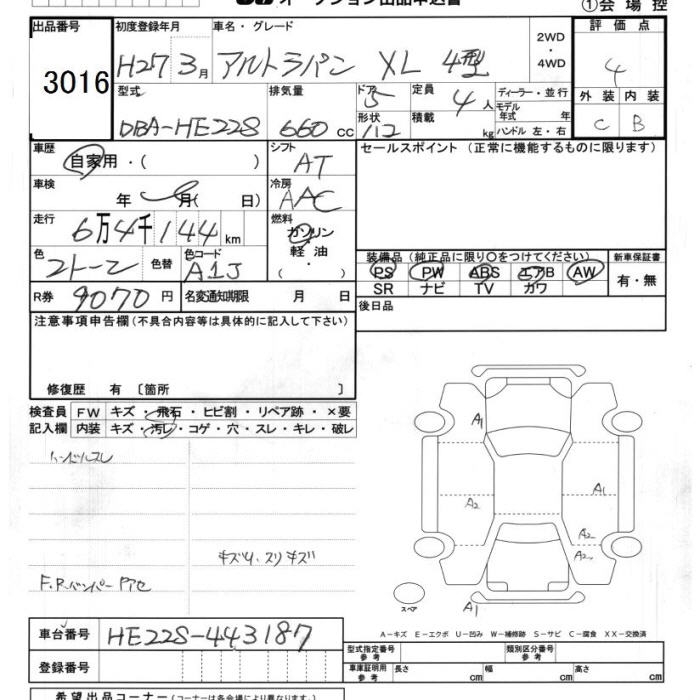 オークション出品申込書
①会場控
出品番号 初度登録年月 車名・グレード 2WD・4WD 評価点
3016 H25 3月 アルトラパン XL 4型 4
型式 排気量 ドア 定員 ディーラー・並行 外装 内装
DBA-HE22S 660cc 5 4人 モデル年式 年 C B
形状 積載
1/2 kg ハンドル 左・右
車歴 シフト セールスポイント (正常に機能するものに限ります)
自家用・( ) AT
車検 冷房
年 月( 日) AAC
走行 燃料
6万4千144km ガソリン・軽油・( )
色 色替 色コード 装備品 (純正品に限り○をつけてください) 新車保証書
2トーン A1J PS PW ABS エアB AW 有・無
R券 9070円 名変通知期限 月 日 SR ナビ TV カワ
注意事項申告欄 (不具合内容等は具体的に記入して下さい) 後日品
修復歴 有 〔箇所 〕
検査員記入欄 FW キズ・飛石・ヒビ割・リペア跡・×要
内装 キズ・汚レ・コゲ・穴・スレ・キレ・破レ
ハンドルスレ
キズ小.スリキズ
F.Rバンパー Pアセ
A1
A1
A2
A2
A2
A1
スペア
A-キズ E-エクボ U-凹み W-補修跡 S-サビ C-腐食 XX-交換済
車台番号 HE22S-443187
型式指定番号 参考 類別区分番号 参考
登録番号 車庫証明用 参考 長さ cm 幅 cm 高さ cm
希望出品コーナー (コーナーは各会場により異なります)